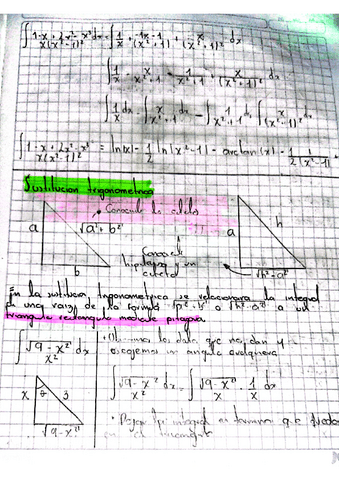 ∫ 1-x+2x²-x³/x(x²-1)² dx = ∫ 1/x + -1x-1/(x²+1) + x/(x²+1)² dx
∫ 1/x - x/x²+1 - 1/x²+1 + x/(x²+1)² dx
∫ 1/x dx - ∫ x/x²+1 dx - ∫ 1/x²+1 dx ∫ x/(x²-1)² dx
∫ 1-x+2x²-x³/x(x²-1)² = ln|x| - 1/2 ln|x²-1| - arctan(x) - 1/2(x²-1) +
Sustitucion trigonometrica
• Conociendo los catetos
a √a²+b² b
Conocido hipotenusa y un cateto
a h √h²-a²
En la sustitucion trigonometrica se relacionara la integral
de una raiz de la forma o √h²-a² a un
triangulo rectangulo mediante pitagoras
∫ √9-x²/x² dx
• los datos que nos dan y
escogemos un angulo cualquiera
∫ √9-x²/x² dx = ∫ √9-x²/x · 1/x dx
x θ 3 √9-x²
• Dejar la integral en terminos que
en el triangulo